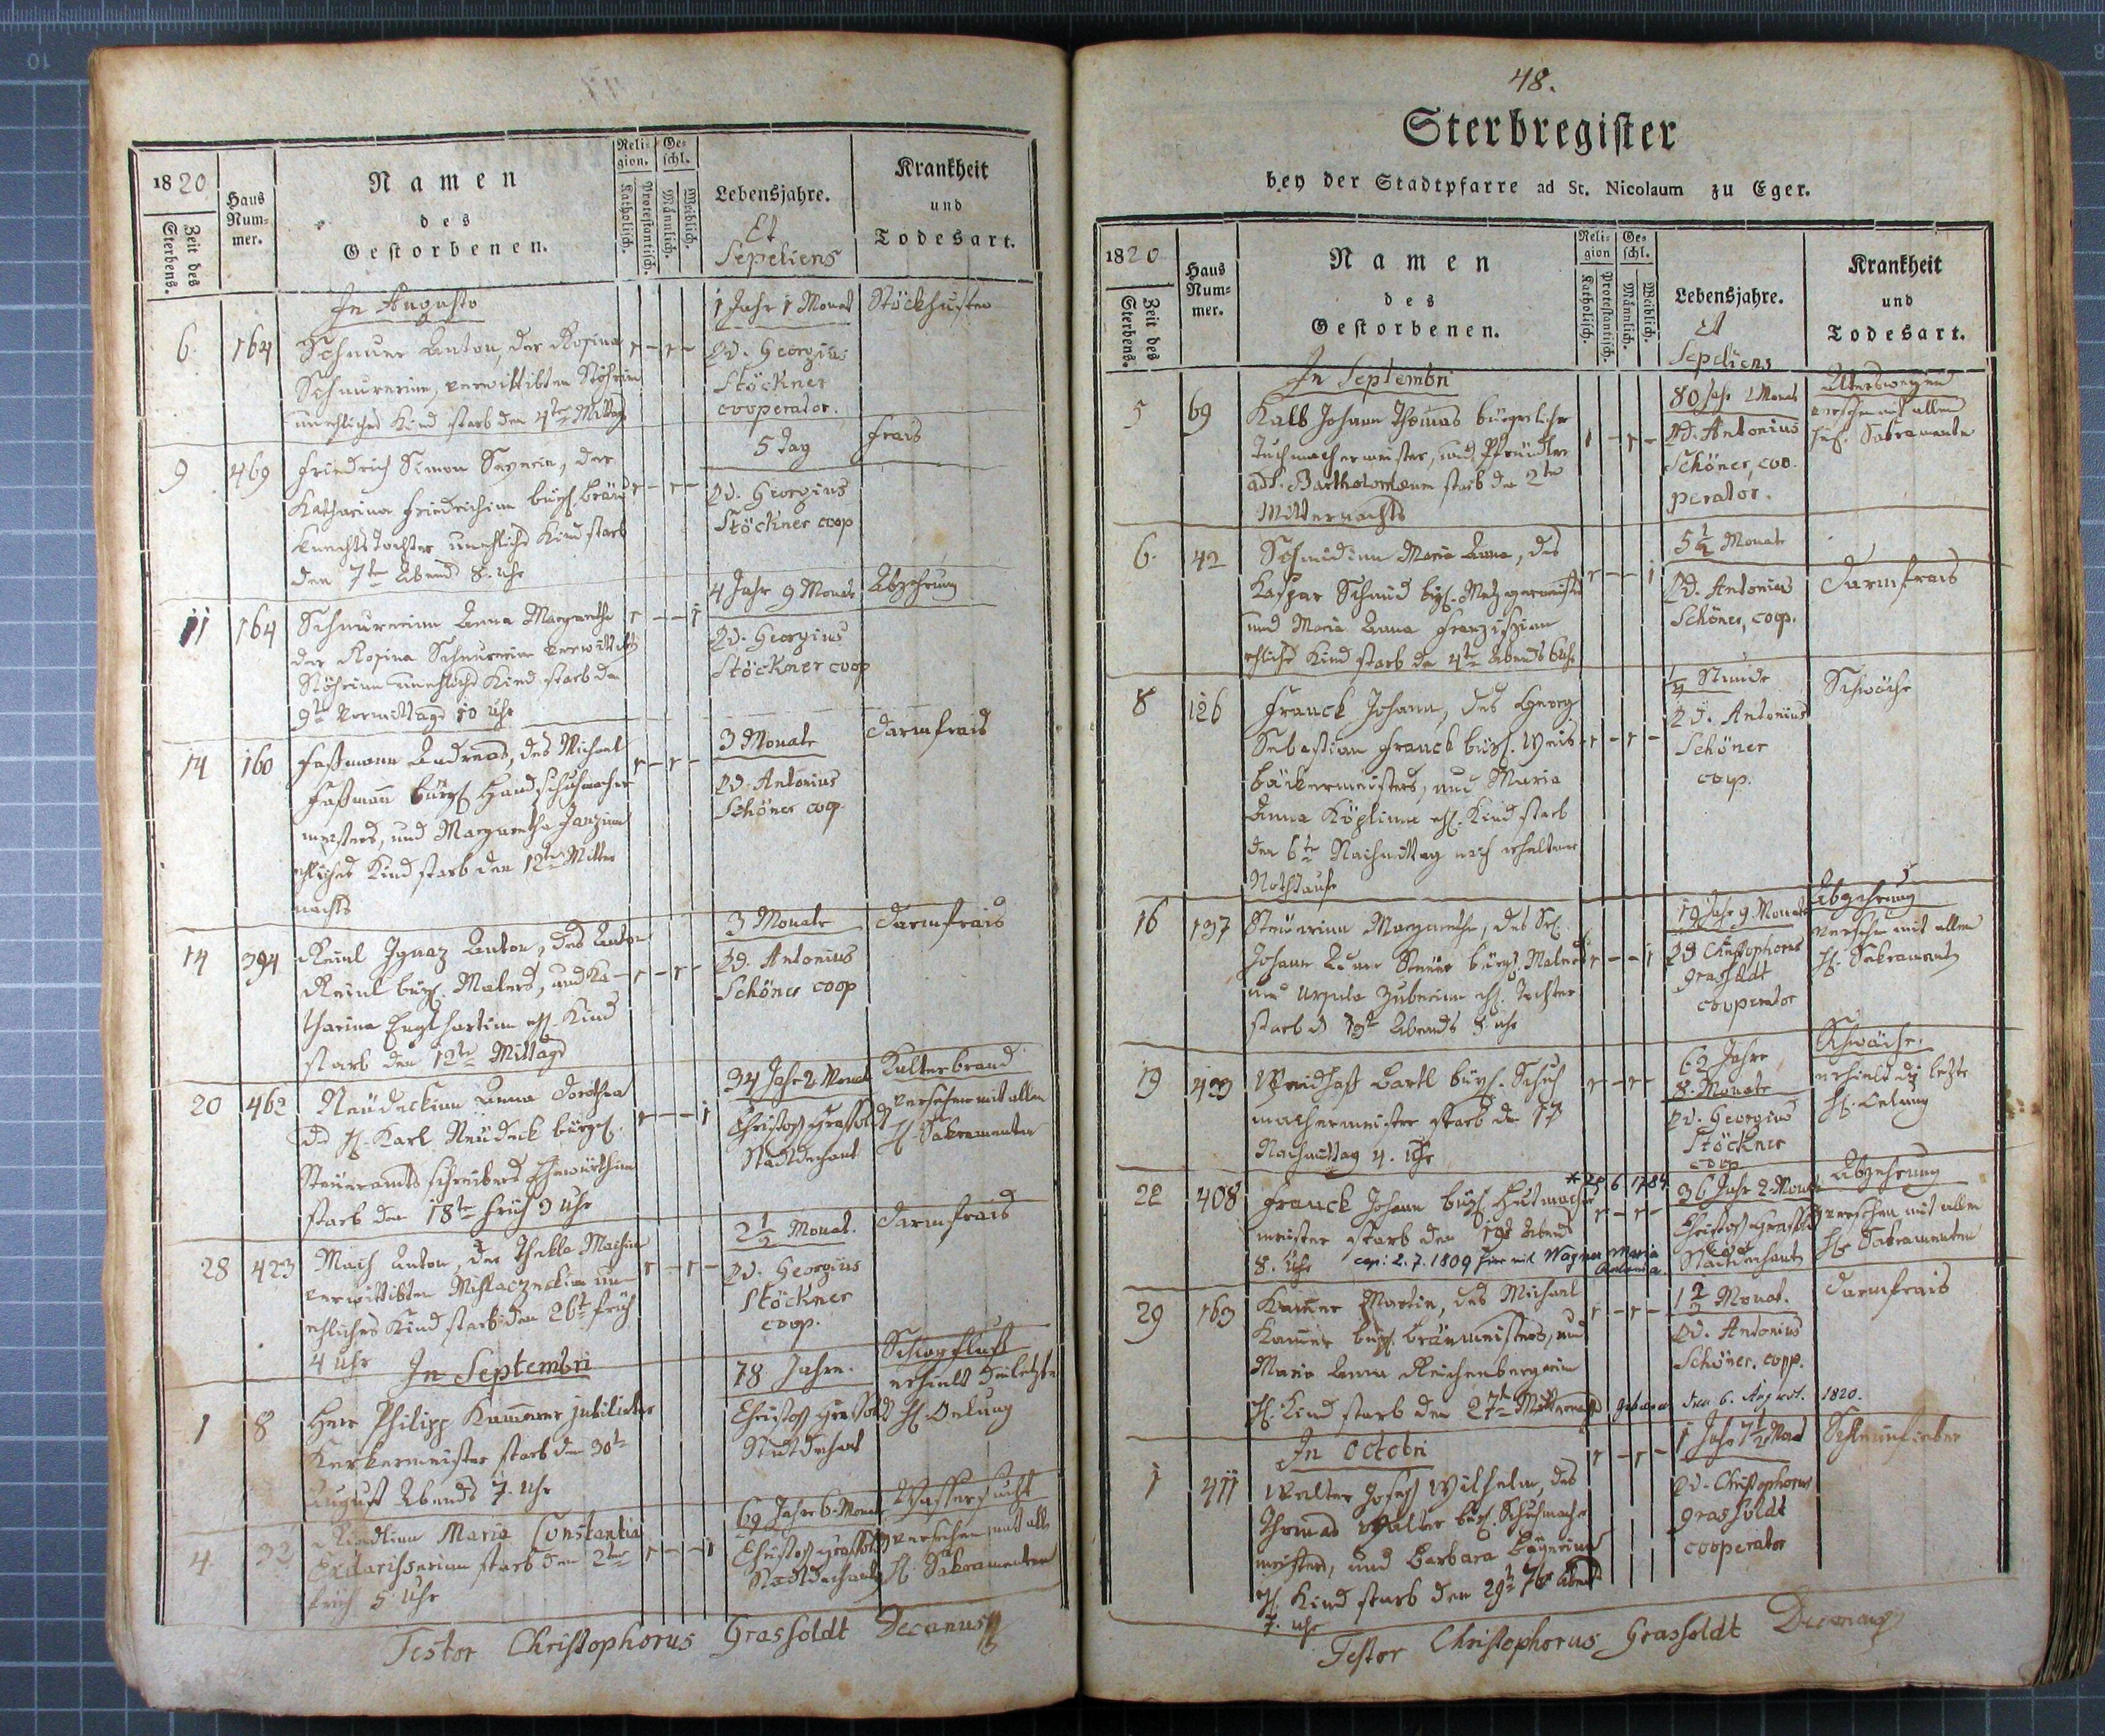 1820
Zeit des Sterbens.
Haus Num=mer.
Namen
des
Gestorbenen.
Reli=gion.
Katholisch.
Protestantisch.
Ge=schl.
Männlich.
Weiblich.
Lebensjahre.
Et
Sepeliens
Krankheit
und
Todesart.
In Augusto
6. 164
Schnurer Anton, der Rosina
Schnurerin, verwittibten Stöhrin
unehliches Kind starb den 4ten Mittag
1 Jahr 1 Monat
PD. Georgius
Stöckner
cooperator.
Stöckhusten
9 469
Friedrich Simon Severin, der
Katharina Friedrichin bürgl. Bräu
knechts Tochter unehliche Kind starb
den 7te Abend 8. Uhr
5 Tag
PD. Georgius
Stöckner coop
Frais
11 164
Schnurerin Anna Margaretha
der Rosina Schnurerin verwittibte
Stöhrin unehliche Kind starb de
9te Vormittags 10 Uhr
4 Jahr 9 Monat
PD. Georgius
Stöckner coop
Abzehrung
14 160
Faßmann Andreas, des Michael
Faßmann bürgl. Handschuhmacher
meisters, und Margaretha
ehliches Kind starb den 12te Mitter
nachts
3 Monate
PD. Antonius
Schöner coop.
Darmfrais
14 394
Reinl Ignaz Anton, des Anton
Reinl bürgl. Malers, und Ka-
tharina Englhartin ehl. Kind
starb den 12te Mittags
3 Monate
PD. Antonius
Schöner coop
Darmfrais
20 462
Neüdeckinn Anna Dorothea
d. H. Karl Neüdeck bürgl.
Steüeramtsschreibers Ehewürthin
starb den 18te früh 3 Uhr
34 Jahr 2 Monat
Christoph Grassoldt
Stadtdechant
Kalterbrand
versehen mit allen
H. Sakramenten
28 423
Mach Anton, der Thekla Machin
verwittibten un-
ehliches Kind starb den 26t früh
4 Uhr
2 1/2 Monat.
PD. Georgius
Stöckner
coop.
Darmfrais
In Septembri
1 8
Herr Philipp Kammerer jubilirter
Kerkermeister starb den 30t
August Abends 7. Uhr
78 Jahre.
Christoph Grassoldt
Stadtdechant
Schlagfluß
erhielt die letzte
H. Oelung
4. 32
Maria Constantia
Exclarisserinn starb den 2ten
früh 5 Uhr
69 Jahre 6 Monat
Christoph Grassoldt
Stadtdechant
Wassersucht
versehen mit alln
H. Sakramenten
Testor Christophorus Grassoldt Decanus
48.
Sterbregister
bey der Stadtpfarre ad St. Nicolaum zu Eger.
1820
Zeit des Sterbens.
Haus Num=mer.
Namen
des
Gestorbenen.
Reli=gion
Katholisch.
Protestantisch.
Ge=schl.
Männlich.
Weiblich.
Lebensjahre.
Et
Sepeliens
Krankheit
und
Todesart.
In Septembri
5 69
Kalb Johann Thomas bürgerlicher
Tuchmachermeister, und Pfründler
ad S. Bartholomæum starb den 2ten
Mitternachts
80 Jahr 2 Monat
PD. Antonius
Schöner, coo-
perator.
Alterswegen
versehen mit allen
heil. Sakramente
6. 42
Schmidinn Maria Anna, des
Kaspar Schmid bgl. Metzgermeister
und Maria Anna
ehliche Kind starb den 4te Abends 6 Uhr
5 1/2 Monate
PD. Antonius
Schöner, coop.
Darmfrais
8 126
Franck Johann, des Georg
Sebastian Franck bürgl. Weis-
bäckermeisters, und Maria
Anna Köplinn ehl. Kind starb
den 6te Nachmittag nach erhaltener
Nothtaufe
1/4 Stunde
PD. Antonius
Schöner
coop.
Schwäche
16 137
Margaretha, des Sel.
Johann bürgl. Malers
und Ursula Zuberinn ehl. Tochter
starb d Abends Uhr
19 Jahr 9 Monate
PD Christophorus
Grassoldt
cooperator
Abzehrung
versehen mit allen
H. Sakrament
19 433
Bartl bürgl. Schuh
machermeister starb de 17
Nachmittag 4. Uhr
62 Jahre
8. Monate
PD. Georgius
Stöckner
coop
Schwäche.
erhielt die letzte
H. Oelung
22 408
* 25 6 1784
Franck Johann bürgl. Hutmacher
meister starb den 19t Abend
8. Uhr
cop: 2. 7. 1809 hier mit Wagner Maria
36 Jahr 2 Monate
Christoph Grassoldt
Stadtdechant
Abzehrung
versehen mit allen
H. Sakramenten
29 163
Kammer Martin, des Michael
Kammer bürgl. Bräumeisters, und
Maria Anna Reichenbergerin
ehl. Kind starb den 27te Mitternacht geboren den 6. August. 1820.
1 2/3 Monat.
PD. Antonius
Schöner. coop.
Darmfrais
In Octobri
1 411
Walter Joseph Wilhelm, des
Thomas Walter bürgl. Schuhmacher
meisters, und Barbara
ehl. Kind starb den 29te 7br Abend
7. Uhr
1 Jahr 7 1/2 Monat
PD. Christophorus
Grassoldt
cooperator
Schleimfieber
Testor Christophorus Grassoldt Decanus